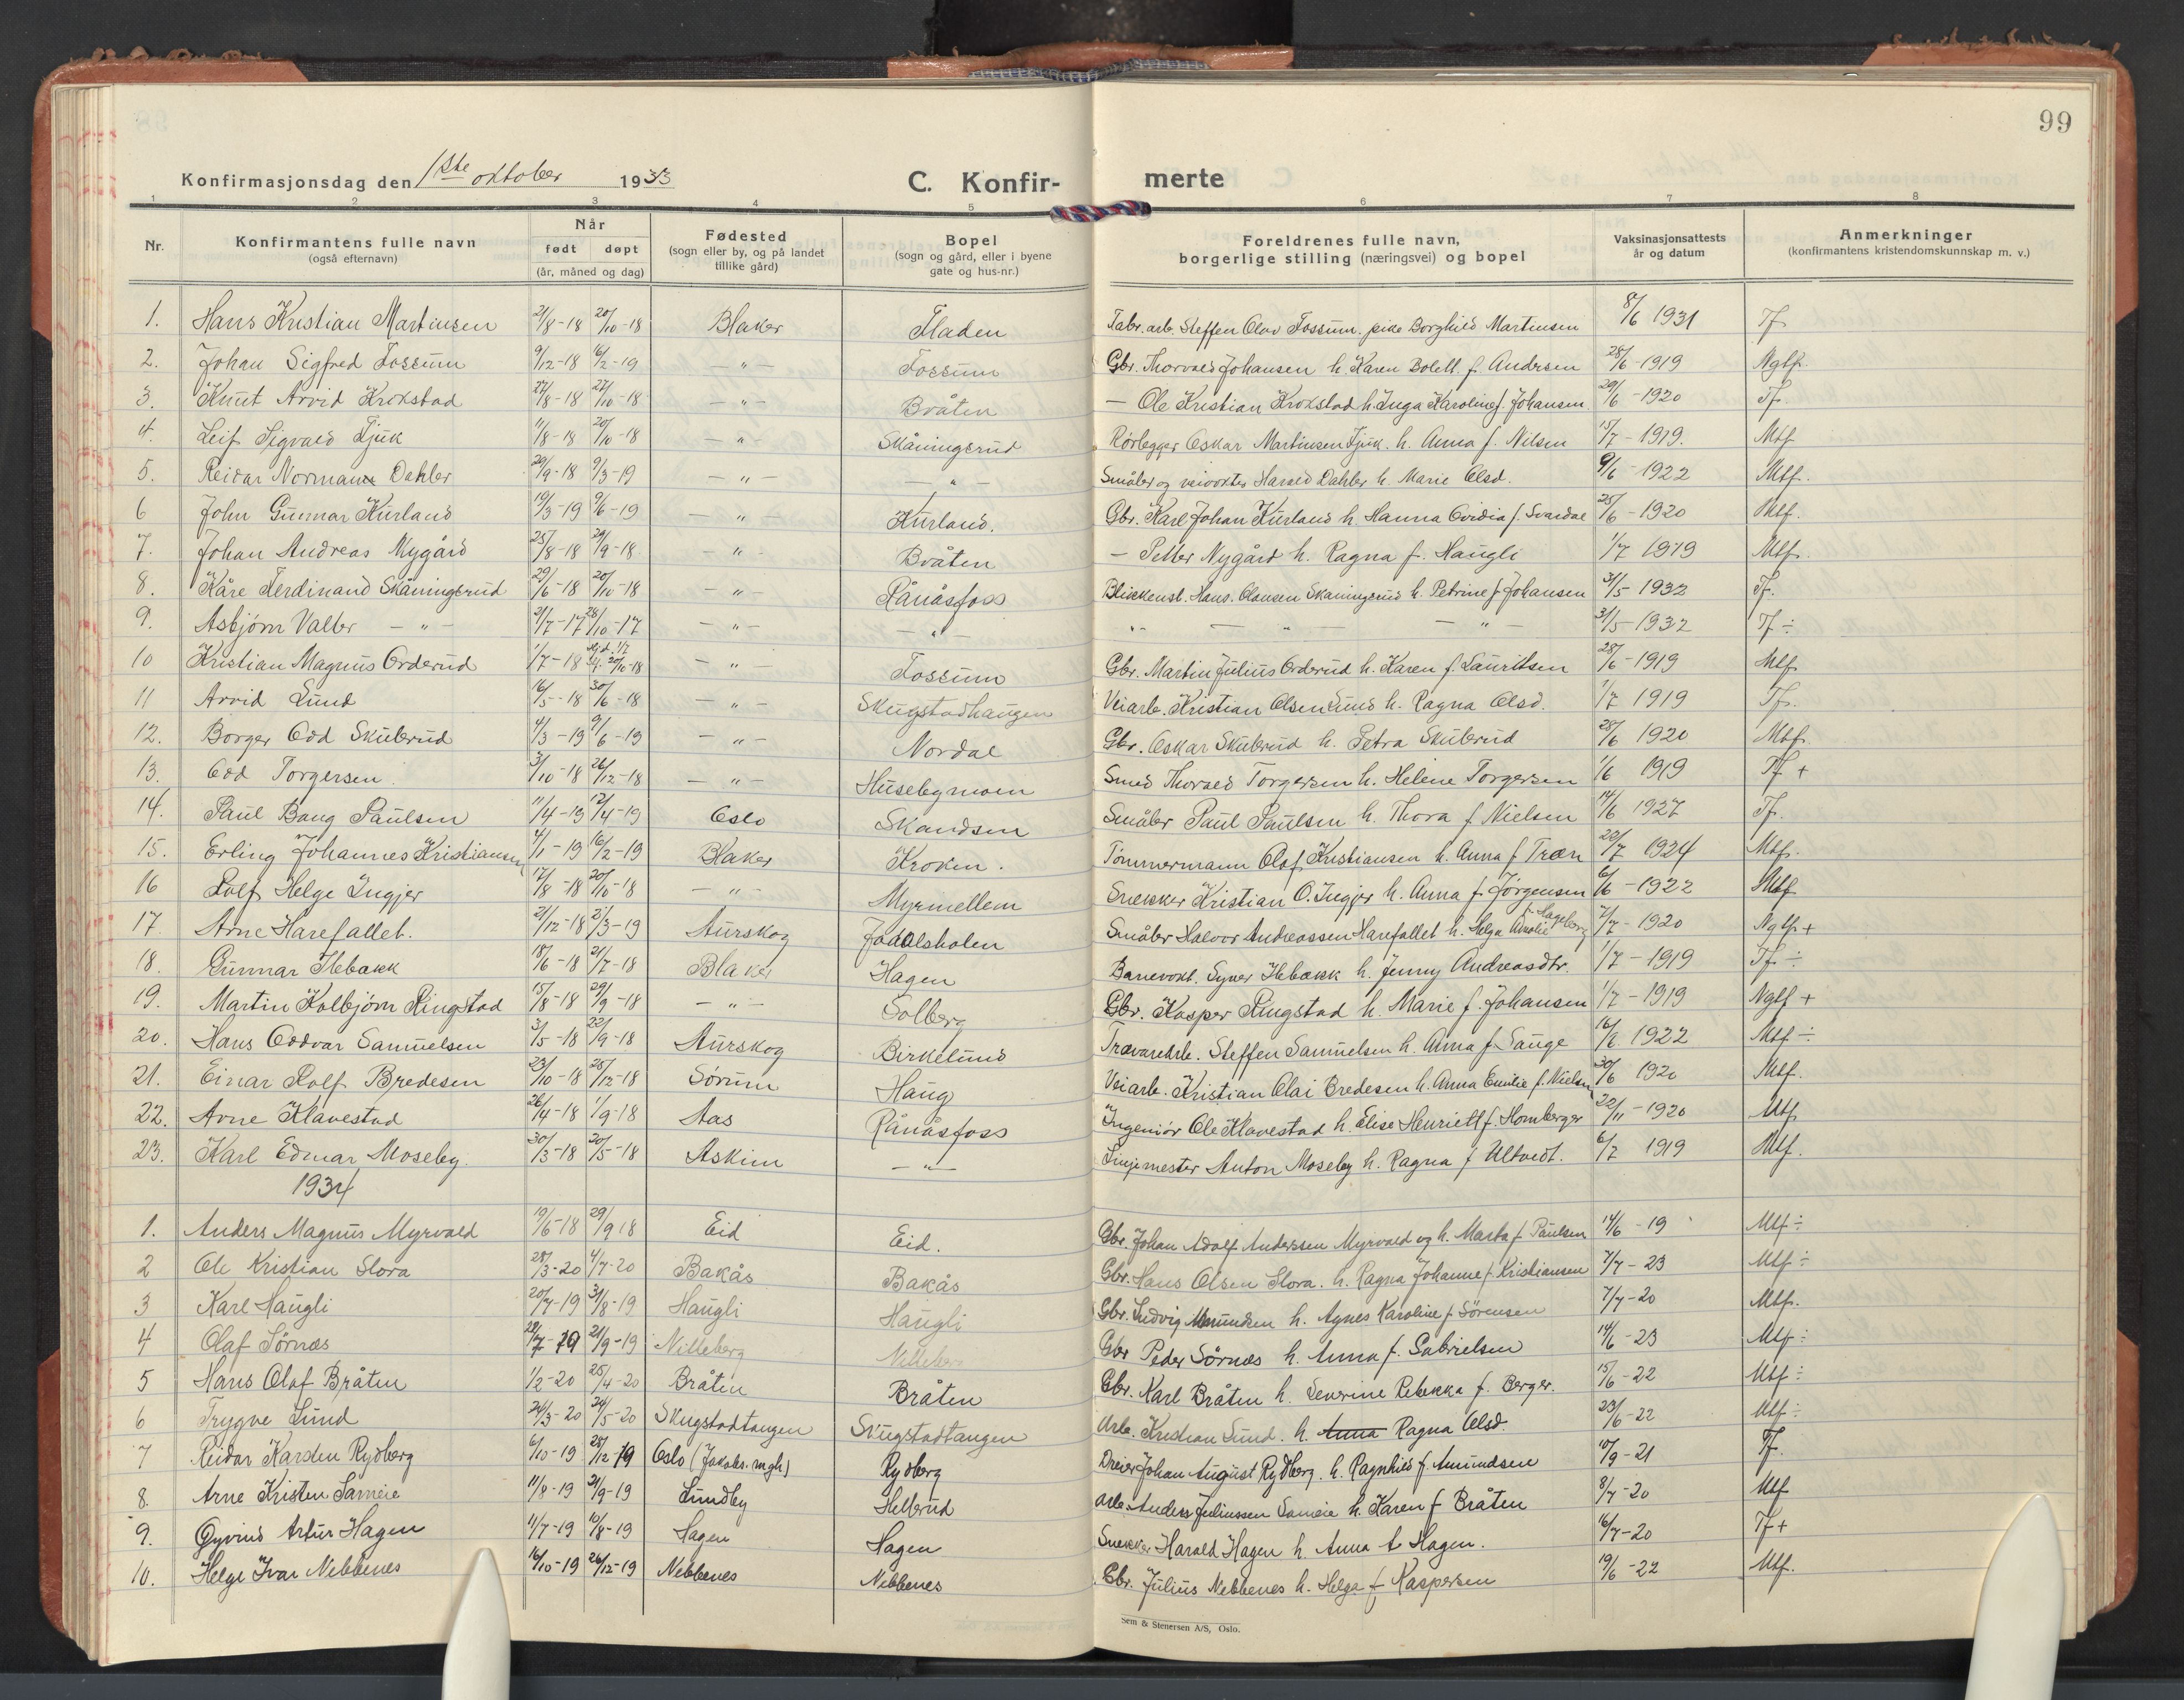 99
Konfirmasjonsdag den 1ste oktober 1933 C. Konfir- merte
1 2 3 4 5 6 7 8
Nr. Konfirmantens fulle navn (også efternavn) Når født døpt (år, måned og dag) Fødested (sogn eller by, og på landet tillike gård) Bopel (sogn og gård, eller i byene gate og hus-nr.) Foreldrenes fulle navn, borgerlige stilling (næringsvei) og bopel Vaksinasjonsattests år og datum Anmerkninger (konfirmantens kristendomskunnskap m. v.)
1. Hans Kristian Martinsen 21/8-18 20/10-18 Blaker Fladen Fabr. arb. Steffen Olav Fossum. pike Borghild Martinsen 8/6 1931 Tf.
2. Johan Sigfred Fossum 9/12-18 16/2-19 - " - Fossum Gbr. Thorvald Johansen h. Karen Bolett. f. Andersen 28/6-1919 Ngtf.
3. Knut Arvid Krokstad 27/8-18 27/10-18 - " - Bråten - Ole Kristian Krokstad h. Inga Karoline f. Johansen 29/6-1920 Tf.
4. Leif Sigvald Tjuk 11/8-18 20/10-18 - " - Skåningsrud Rørlegger Oskar Martinsen Tjuk. h. Anna f. Nilsen 15/7-1919. Mtf.
5. Reidar Norman Dahler 29/9-18 9/3-19 - " - - " - Småbr og veivokter Harald Dahler h. Marie Olsd. 9/6-1922 Mtf.
6 John Gunnar Kurland 19/3-19 9/6-19 - " - Kurland. Gbr. Karl Johan Kurland h. Hanna Ovidia f. Svardal 25/6-1920 Mtf.
7. Johan Andreas Nygård 25/8-18 29/9-18 - " - Bråten - Petter Nygård h. Ragna f. Haugli 1/7 1919 Mtf.
8. Kåre Ferdinand Skåningsrud 29/6-18 20/10-18 - " - Rånåsfoss Blikkensl. Hans. Olausen Skaningsrud h. Petrine f. Johansen 31/5-1932 Tf.
9. Asbjørn Valter - " - 21/7-17 28/10-17 - " - - " - " - " - " - 31/5-1932 Tf ÷
10 Kristian Magnus Orderud 1/7-18 20/10-18 - " - Fossum Gbr. Martin Julius Orderud h. Karen f. Lauritsen 28/6-1919 Mtf.
11 Arvid Lund 16/5-18 30/6-18 - " - Skugstadhaugen Veiarb. Kristian Olsen Lund h. Ragna Olsd. 1/7 1919 Tf.
12. Borger Odd Skuberud 4/3-19 9/6-19 - " - Nordal Gbr. Oskar Skuberud h. Petra Skuberud 28/6 1920 Mtf.
13. Odd Torgersen. 3/10-18 26/12-18 - " - Husebymoen Smed Thorvald Torgersen h. Helene Torgersen 1/6 1919 Tf +
14. Paul Bang Paulsen 11/4-19 12/4-19 Oslo Skandsen Småbr Paul Paulsen h. Thora f Nielsen 14/6 1927 Tf.
15. Erling Johannes Kristiansen 4/1-19 16/2-19 Blaker Kroken. Tømmermann Olaf Kristiansen h. Anna f Træn 20/7 1924 Mtf.
16 Rolf Helge Ingjer 17/8-18 20/10-18 - " - Myrmellem Snekker Kristian O. Ingjer h. Anna f. Jørgensen 6/6-1922 Mtf
17. Arne Harefallet. 21/12-18 2/3-19 Aurskog Jødalsholen Småbr Halvor Andreassen Harefallet h. Helga Amalie f. Hageberg 7/7-1920 Ngtf +
18. Gunnar Ilebakk 18/6-18 21/7-18 Blaker Hagen Banevokt. Syver Ilebakk h. Jenny Andreasdtr. 1/7-1919 Tf ÷
19. Martin Kolbjørn Ringstad 15/8-18 29/9-18 - " - Solberg Gbr. Kasper Ringstad h. Marie f. Johansen 1/7-1919 Ngtf +
20. Hans Oddvar Samuelsen 3/5-18 22/9-18 Aurskog Birkelund Trævarearb. Steffen Samuelsen h. Anna f Sauge 16/6 1922 Mtf ÷
21. Einar Rolf Bredesen 23/10-18 25/12-18 Sørum Haug Veiarb. Kristian Olai Bredesen h. Anna Emilie f. Nielsen 30/6 1920 Mtf.
22. Arne Klavestad 26/4-18 1/9-18 Aas Rånåsfoss Ingeniør Ole Klavestad h. Elise Henriett f. Homberger 22/11-1920 Mtf.
23. Karl Edmar Moseby. 30/3-18 20/5-18 Askim - " - Linjemester Anton Moseby h. Ragna f Ultvedt. 6/7 1919 Mtf.
1934
1. Anders Magnus Myrvold 19/6-18 29/9 18 Eid Eid. Gbr. Johan Adolf Anderssen Myrvold og h. Marta f Paulsen 14/6-19 Mtf ÷
2 Ole Kristian Slora 28/3-20 4/7-20 Bakås Bakås Gbr. Hans Olsen Slora. h. Ragna Johanne f. Kristiansen 7/7-23 Mtf ÷
3 Karl Haugli 20/7-19 31/8-19 Haugli Haugli Gbr. Ludvig Amundsen h. Agnes Karoline f. Sørensen 7/7-20 Mtf.
4 Olaf Sørnæs 22/7-19 21/9-19 Nilleberg Nilleberg Gbr Peder Sørnæs h. Anna f. Gabrielsen 14/6-23 Mtf ÷
5 Hans Olaf Bråten 1/2-20 25/4-20 Bråten Bråten Gbr. Karl Bråten h. Severine Rebekka f. Berger. 15/6-22 Mtf ÷
6 Trygve Lund 24/3-20 24/5-20 Skugstadtangen Skugstadtangen Arb. Kristian Lund. h. Anna Ragna Olsd. 23/6-22 Mtf ÷
7 Reidar Karsten Rydberg 6/10-19 28/12 19 Oslo (Jakobs. mgh) Rydberg Dreier Johan August Rydberg. h. Ragnhild f. Amundsen 10/9-21 Tf.
8. Arne Kristen Sameie 11/8-19 21/9-19 Lundby Hellerud Arb. Anders Juliussen Sameie h. Karen f Bråten 8/7-20 Mtf
9. Øyvind Artur Hagen 11/7-19 10/8-19 Hagen Hagen Snekker Harald Hagen h. Anna f. Hagen. 16/7-20 Tf +
10. Helge Ivar Nebbenes 16/10-19 26/12-19 Nebbenes Nebbenes Gbr. Julius Nebbenes h. Helga f Kaspersen 19/6-22 Mtf.
Sem & Stenersen A/S, Oslo.